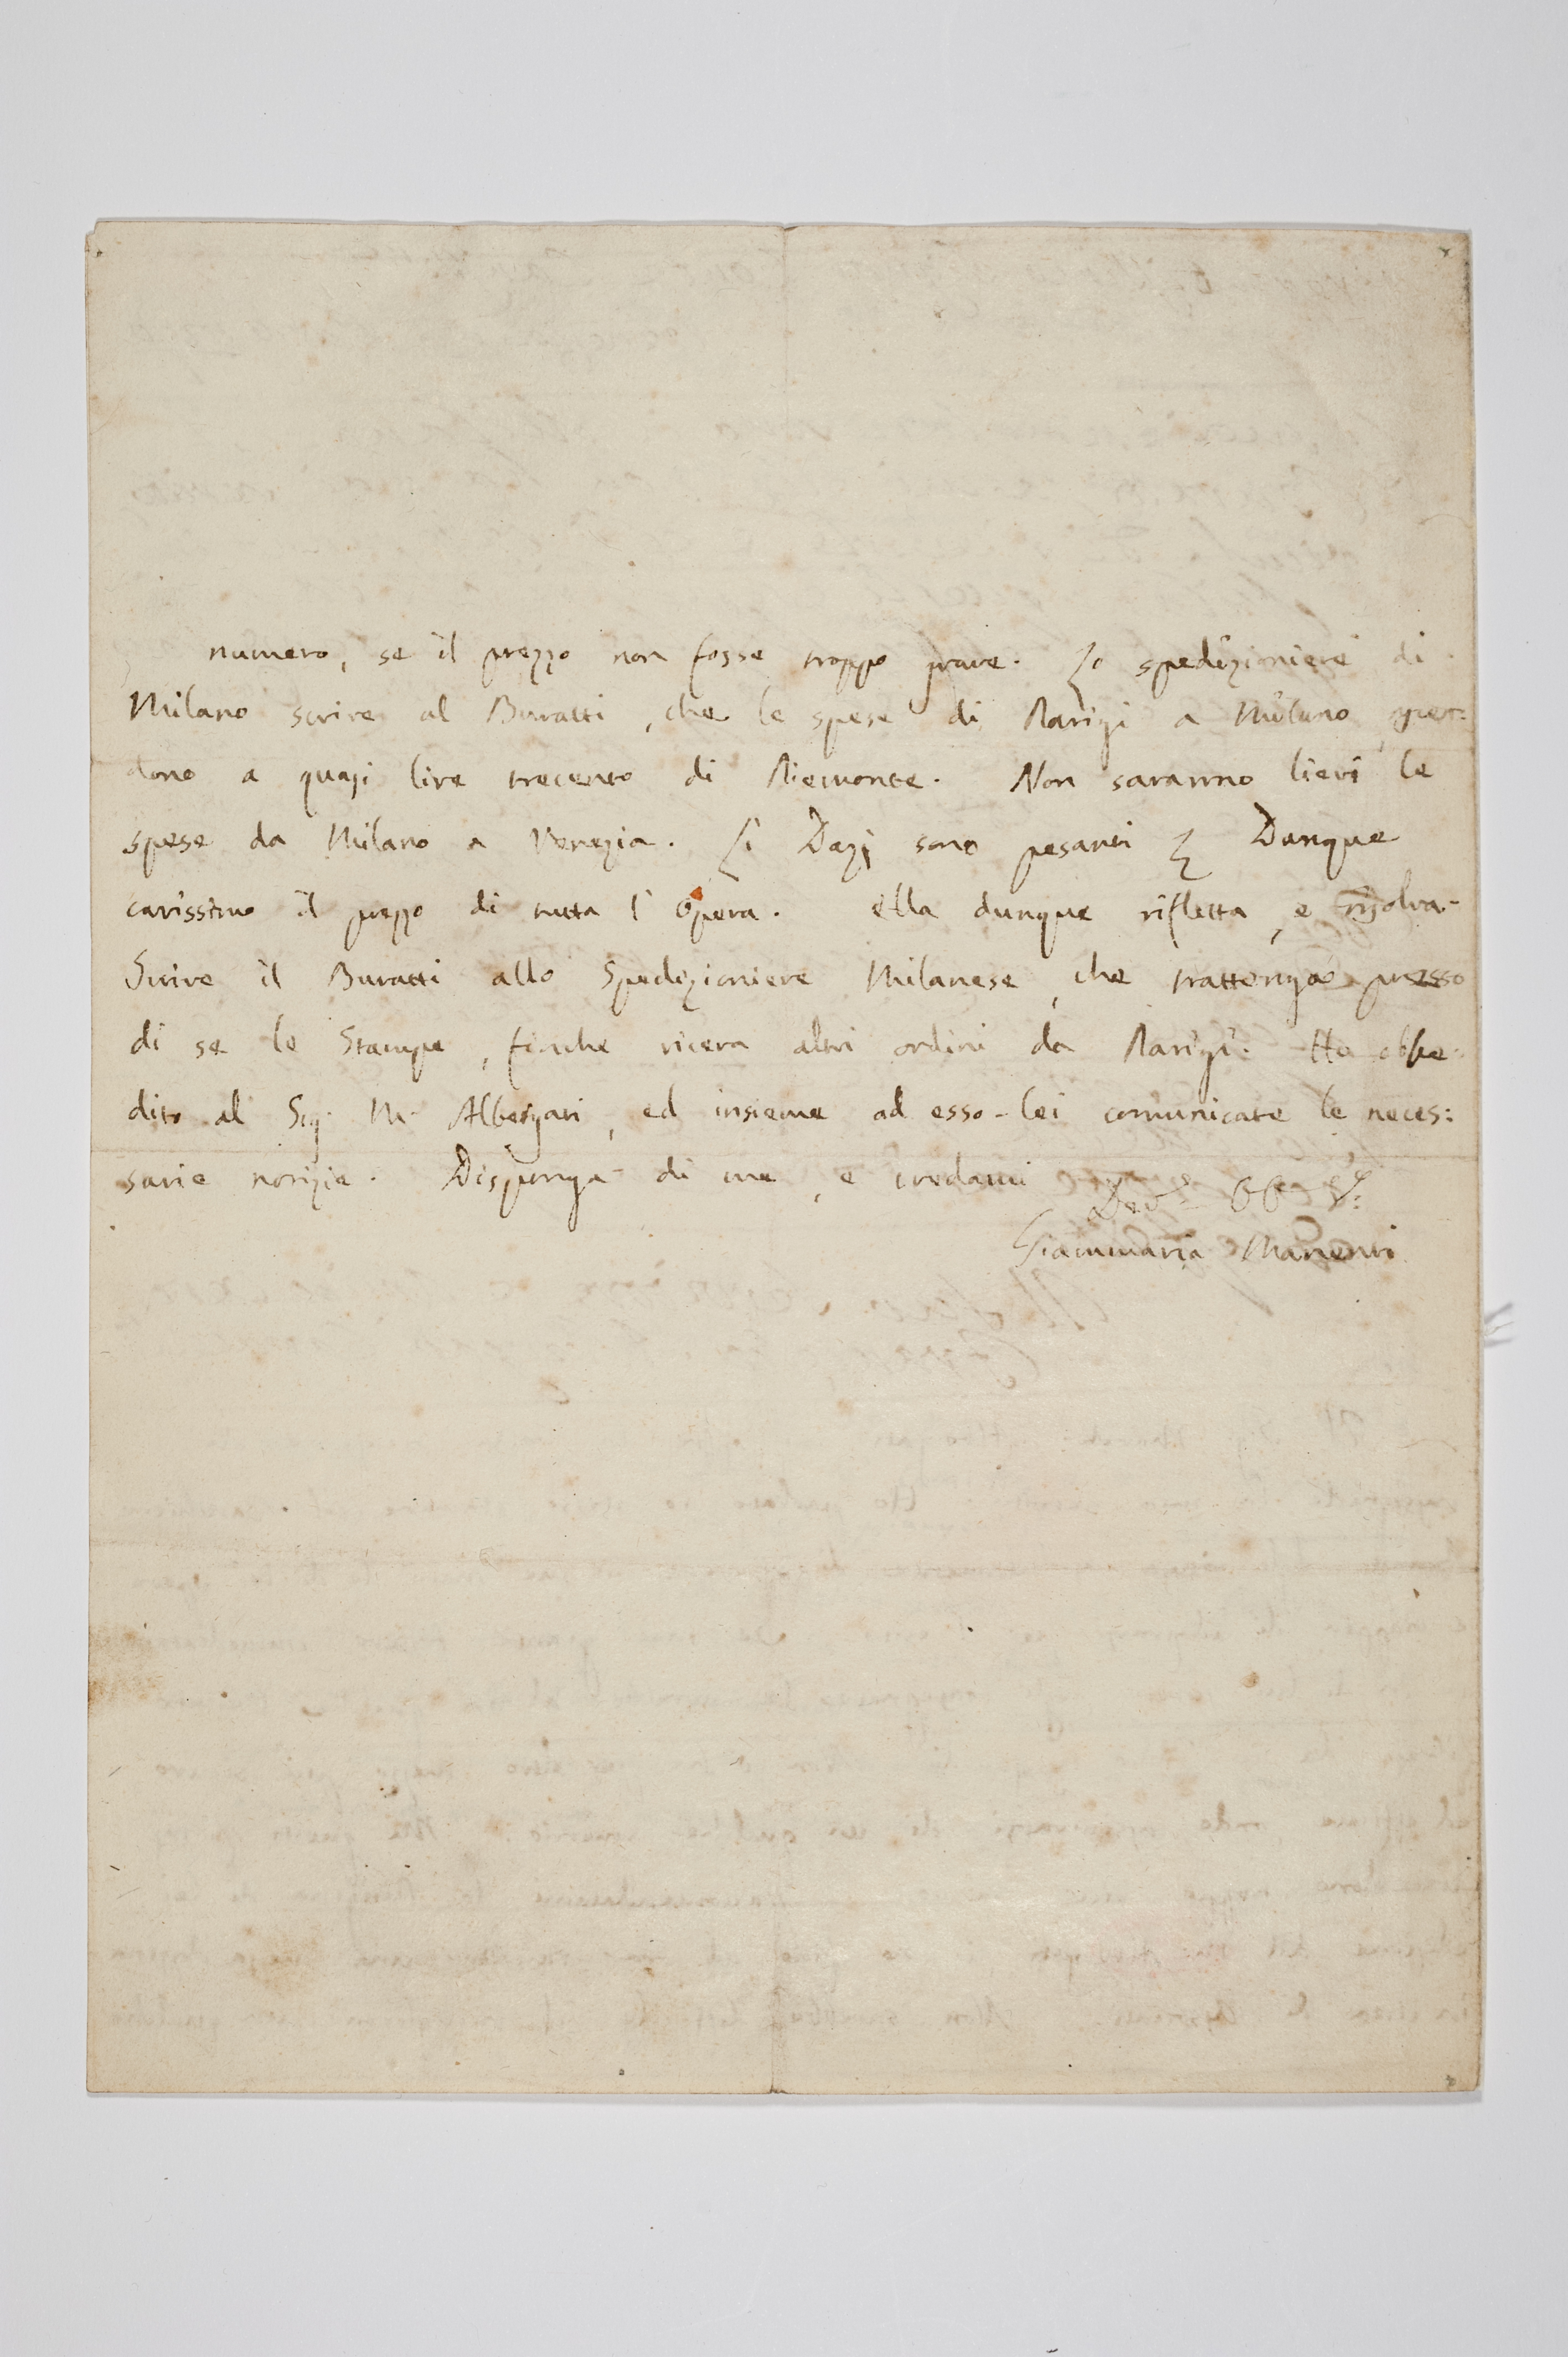 numero, se il prezzo non fosse troppo grave. Lo spedizioniere di
Milano scrive al Buratti, che le spese di Parigi a Milano,
dono a quasi lire trecento di Piemonte. Non saranno lievi le
spese da Milano a Venezia. Li Dazj sono pesanti Dunque
carissimo il prezzo di tutta l'Opera. Ella dunque rifletta, e risolva.
Scrive il Buratti allo Spedizioniere Milanese, che trattenga presso
di se le Stampe, finche riceva altri ordini da Parigi. Ho obbe=
dito al Sig. M. Albergati, ed insieme ad esso-lei comunicate le neces:
sarie notizie. Disponga di me, e credami
Dev.o Obb. S.
Giammaria Manenti